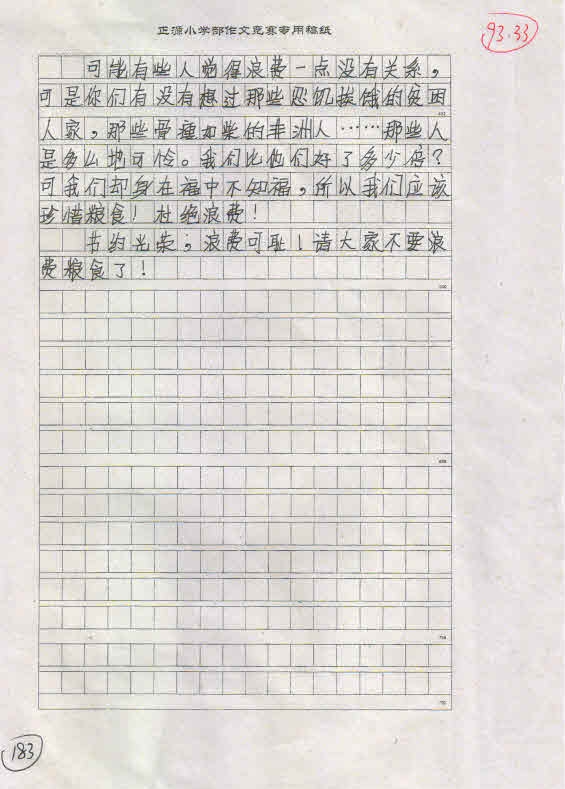 正源小学部作文竞赛专用稿纸
93.33
可能有些人觉得浪费一点没有关系,
可是你们有没有想过那些忍饥挨饿的贫困
人家,那些骨瘦如柴的非洲人……那些人
是多么地可怜。我们比他们好了多少倍?
可我们却身在福中不知福,所以我们应该
珍惜粮食!杜绝浪费!
节约光荣,浪费可耻!请大家不要浪
费粮食了!
183